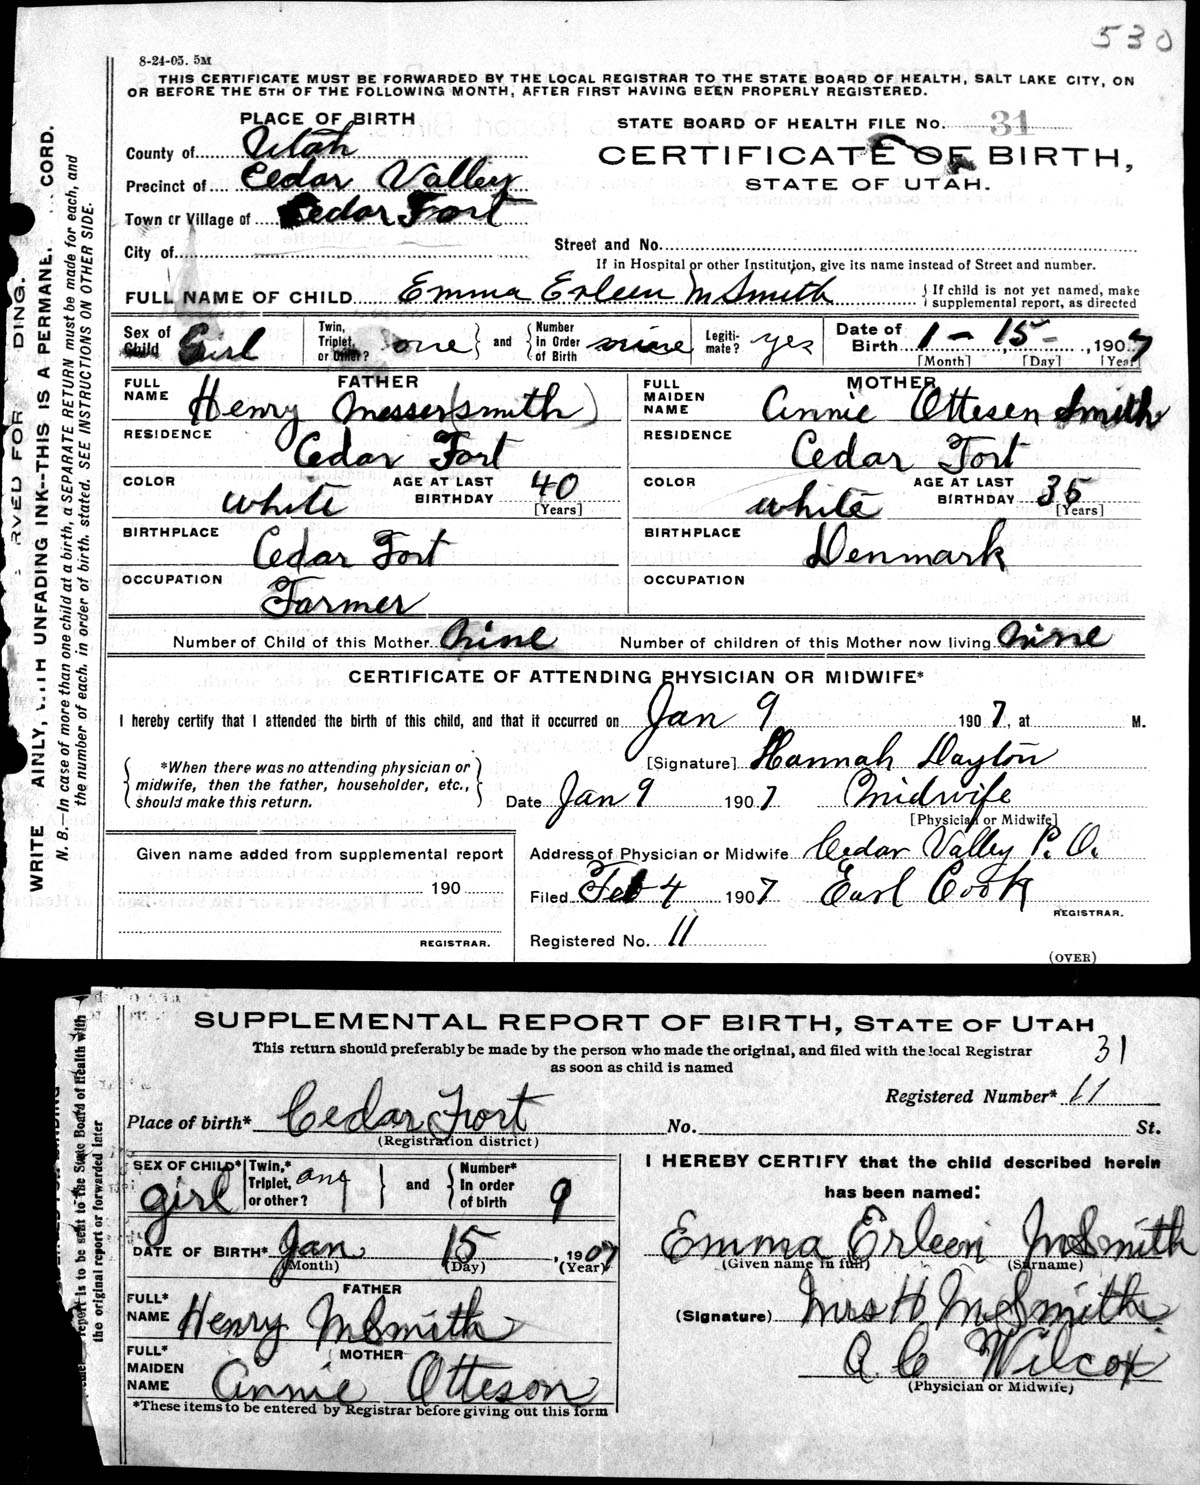 530
8-24-05. 5M
THIS CERTIFICATE MUST BE FORWARDED BY THE LOCAL REGISTRAR TO THE STATE BOARD OF HEALTH, SALT LAKE CITY, ON
OR BEFORE THE 5TH OF THE FOLLOWING MONTH, AFTER FIRST HAVING BEEN PROPERLY REGISTERED.
PLACE OF BIRTH
STATE BOARD OF HEALTH FILE No. 31
County of Utah
CERTIFICATE OF BIRTH,
Precinct of Cedar Valley
STATE OF UTAH.
Town or Village of Cedar Fort
City of
Street and No.
If in Hospital or other Institution, give its name instead of Street and number.
FULL NAME OF CHILD Emma Erleen M Smith { If child is not yet named, make supplemental report, as directed
Sex of Child Girl
Twin, Triplet, or Other? one } and { Number in Order of Birth nine
Legitimate? yes
Date of Birth 1 - 15 - , 1907
[Month] [Day] [Year]
FATHER
FULL NAME Henry Messer(smith)
MOTHER
FULL MAIDEN NAME Annie Ottesen Smith
RESIDENCE Cedar Fort
RESIDENCE Cedar Fort
COLOR white AGE AT LAST BIRTHDAY 40 [Years]
COLOR white AGE AT LAST BIRTHDAY 35 [Years]
BIRTHPLACE Cedar Fort
BIRTHPLACE Denmark
OCCUPATION Farmer
OCCUPATION
Number of Child of this Mother nine Number of children of this Mother now living nine
CERTIFICATE OF ATTENDING PHYSICIAN OR MIDWIFE*
I hereby certify that I attended the birth of this child, and that it occurred on Jan 9 1907, at M.
{ *When there was no attending physician or midwife, then the father, householder, etc., should make this return. }
[Signature] Hannah Dayton
Date Jan 9 1907 Midwife
[Physician or Midwife]
Given name added from supplemental report
190
REGISTRAR.
Address of Physician or Midwife Cedar Valley P. O.
Filed Feb 4 1907 Earl Cook
REGISTRAR.
Registered No. 11
(OVER)
RVED FOR DING.
WRITE AINLY, WITH UNFADING INK--THIS IS A PERMANE CORD.
N. B.—In case of more than one child at a birth, a SEPARATE RETURN must be made for each, and
the number of each, in order of birth, stated. SEE INSTRUCTIONS ON OTHER SIDE.
SUPPLEMENTAL REPORT OF BIRTH, STATE OF UTAH
This return should preferably be made by the person who made the original, and filed with the local Registrar
as soon as child is named
31
Registered Number* 11
Place of birth* Cedar Fort No. St.
(Registration district)
SEX OF CHILD* girl
Twin,* Triplet, or other? } and { Number* In order of birth 9
DATE OF BIRTH* Jan 15, 1907
(Month) (Day) (Year)
FATHER
FULL* NAME Henry M Smith
MOTHER
FULL* MAIDEN NAME Annie Otteson
*These items to be entered by Registrar before giving out this form
I HEREBY CERTIFY that the child described herein
has been named:
Emma Erleen M Smith
(Given name in full) (Surname)
(Signature) Mrs H M Smith
A C Wilcox
(Physician or Midwife)
report is to be sent to the State Board of Health with
the original report or forwarded later